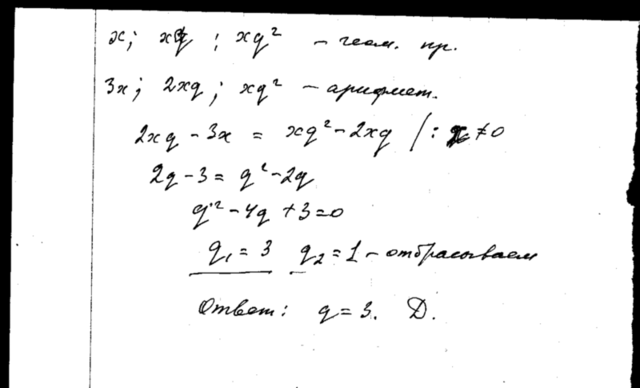 x; xq; xq² – геом. пр.
3x; 2xq; xq² – арифмет.
2xq – 3x = xq² – 2xq /: x ≠ 0
2q – 3 = q² – 2q
q² – 4q + 3 = 0
q₁ = 3 q₂ = 1 – отбрасываем
Ответ: q = 3. D.